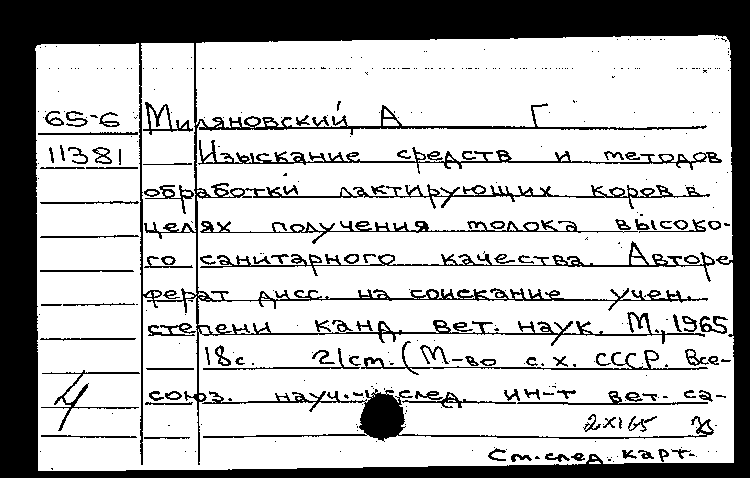 65-6 Миляновский, А Г
11381 Изыскание средств и методов
обработки лактирующих коров в
целях получения молока высоко-
го санитарного качества. Авторе
ферат дисс. на соискание учен.
степени канд. вет. наук. М., 1965.
18с. 21 см. (М-во с.х. СССР. Все-
4 союз. науч.-исслед. ин-т вет. са-
2X165
См. след. карт.